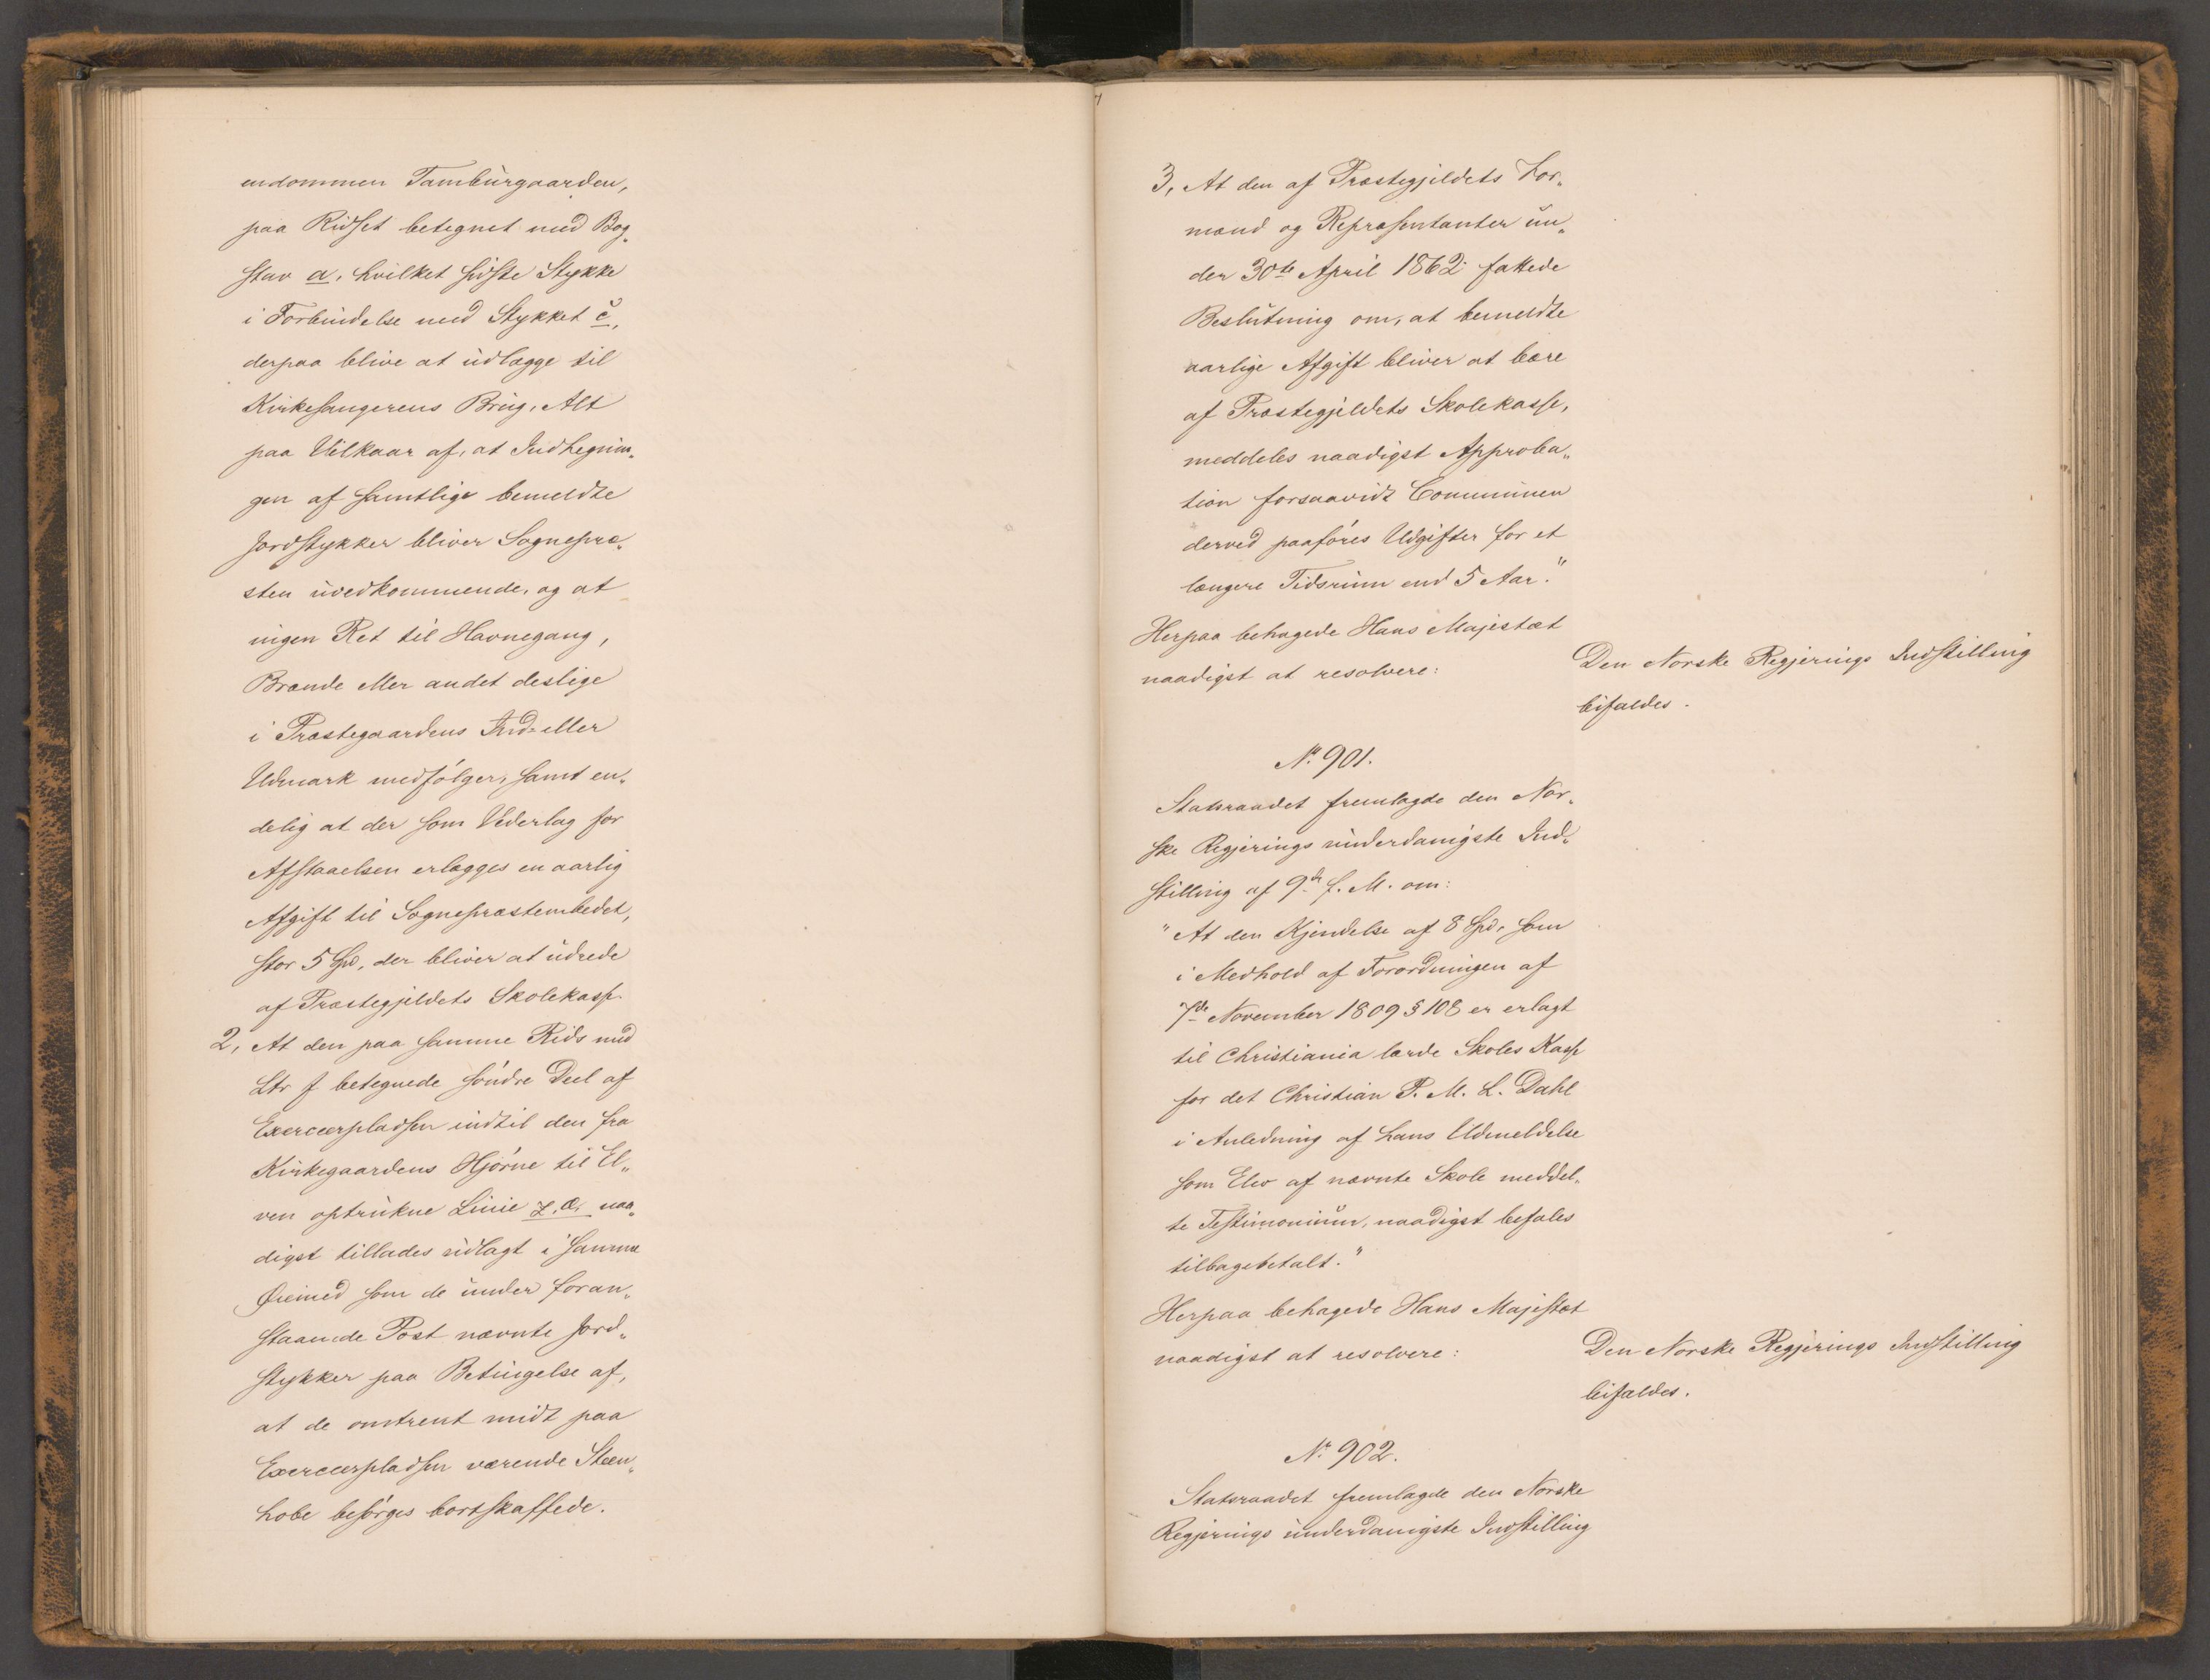 endommen Tamburgaarden,
paa Ridset betegnet med Bog„
stav a, hvilket sidste Stykke
i Forbindelse med Stykket c,
derpaa blive at udlægge til
Kirkesangerens Brug, Alt
paa Vilkaar af, at Indhegnin„
gen af samtlige bemeldte
Jordstykker bliver Sognepræ„
sten uvedkommende, og at
ingen Ret til Havnegang,
Brænde eller andet deslige
i Præstegaardens Ind- eller
Udmark medfølger, samt en„
delig at der som Vederlag for
Afstaaelsen erlægges en aarlig
Afgift til Sognepræstembedet,
stor 5 Spd, der bliver at udrede
af Præstegjeldets Skolekasse.
2, At den paa samme Rids med
Ltr f betegnede søndre Deel af
Exerceerpladsen indtil den fra
Kirkegaardens Hjørne til El„
ven optrukne Linie z. æ. naa„
digst tillades udlagt i samme
Øiemed som de under foran„
staaende Post nævnte Jord„
stykker paa Betingelse af,
at de omtrent midt paa
Exerceerpladsen værende Steen„
hobe besørges bortskaffede.
3, At den af Præstegjeldets For„
mænd og Repræsentanter un„
der 30te April 1862 fattede
Beslutning om, at bemeldte
aarlige Afgift bliver at bære
af Præstegjeldets Skolekasse,
meddeles naadigst Approba„
tion forsaavidt Communen
derved paaføres Udgifter for et
længere Tidsrum end 5 Aar."
Herpaa behagede Hans Majestæt
naadigst at resolvere:
Den Norske Regjerings Indstilling
bifaldes.
No 901.
Statsraadet fremlagde den Nor„
ske Regjerings underdanigste Ind„
stilling af 9de f. M. om:
"At den Kjendelse af 8 Spd, som
i Medhold af Forordningen af
7de November 1809 § 108 er erlagt
til Christiania lærde Skoles Kasse
for det Christian P. M. L. Dahl
i Anledning af hans Udmeldelse
som Elev af nævnte Skole meddel„
te Testimonium, naadigst befales
tilbagebetalt."
Herpaa behagede Hans Majestæt
naadigst at resolvere:
Den Norske Regjerings Indstilling
bifaldes.
No 902.
Statsraadet fremlagde den Norske
Regjerings underdanigste Indstilling